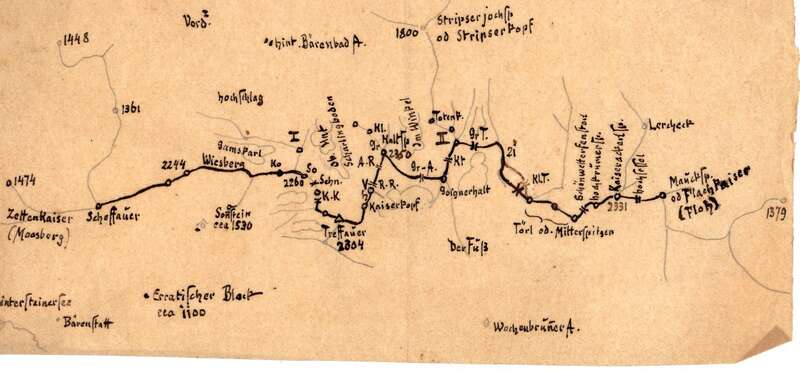 Vord.
Stripserjochsp
od Stripserkopf
1800
1448
Hint. Bärenbad A.
1361
Hochschlag
Gamskarl
I
Ob. Hint
Scharlingboden
Kl.
Gr. Haltsp
2350
Im Winkel
Totenk.
II
Gr T.
21
Schönwetterfensterl
Hochbrunnersp.
Kaiseradlersp.
2331
Hochsessel
Lercheck
2244
Wiesberg
Ko
So
2260
Schn.
K.K
A.R.
V.
R.R.
Gr-A.
Kt
Kl.T.
1474
Zettenkaiser
(Moosberg)
Scheffauer
Sonnstein
cca 1530
Kaiserkopf
Treffauer
2304
Goignerhalt
Der Fuß
Törl od. Mitterspitzen
Maucksp.
od Flachkaiser
(Floh)
1379
Hintersteinersee
Bärenstatt
Erratischer Block
cca 1100
Wochenbrunner A.